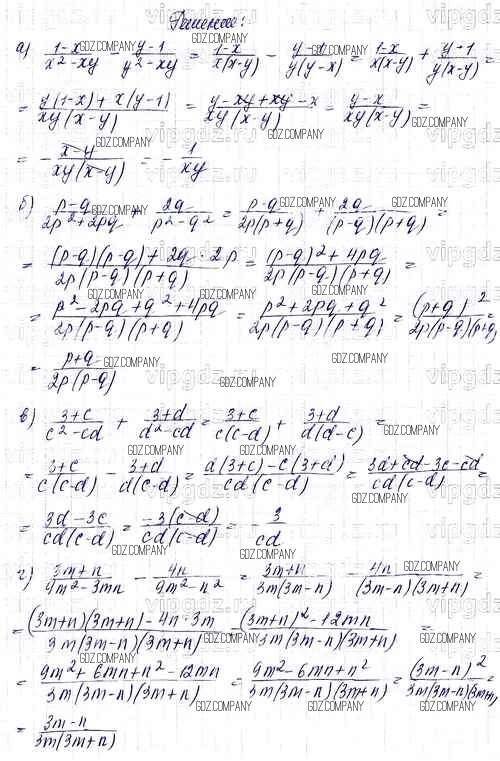 Решение:
а) (1-x)/(x²-xy) - (y-1)/(y²-xy) = (1-x)/(x(x-y)) - (y-1)/(y(y-x)) = (1-x)/(x(x-y)) + (y-1)/(y(x-y)) =
= (y(1-x)+x(y-1))/(xy(x-y)) = (y-xy+xy-x)/(xy(x-y)) = (y-x)/(xy(x-y)) =
= -(x-y)/(xy(x-y)) = -1/(xy)
б) (p-q)/(2p²+2pq) + 2q/(p²-q²) = (p-q)/(2p(p+q)) + 2q/((p-q)(p+q)) =
= ((p-q)(p-q)+2q·2p)/(2p(p-q)(p+q)) = ((p-q)²+4pq)/(2p(p-q)(p+q)) =
= (p²-2pq+q²+4pq)/(2p(p-q)(p+q)) = (p²+2pq+q²)/(2p(p-q)(p+q)) = (p+q)²/(2p(p-q)(p+q)) =
= (p+q)/(2p(p-q))
в) (3+c)/(c²-cd) + (3+d)/(d²-cd) = (3+c)/(c(c-d)) + (3+d)/(d(d-c)) =
= (3+c)/(c(c-d)) - (3+d)/(d(c-d)) = (d(3+c)-c(3+d))/(cd(c-d)) = (3d+cd-3c-cd)/(cd(c-d)) =
= (3d-3c)/(cd(c-d)) = -3(c-d)/(cd(c-d)) = -3/(cd)
г) (3m+n)/(9m²-3mn) - 4n/(9m²-n²) = (3m+n)/(3m(3m-n)) - 4n/((3m-n)(3m+n)) =
= ((3m+n)(3m+n)-4n·3m)/(3m(3m-n)(3m+n)) = ((3m+n)²-12mn)/(3m(3m-n)(3m+n)) =
= (9m²+6mn+n²-12mn)/(3m(3m-n)(3m+n)) = (9m²-6mn+n²)/(3m(3m-n)(3m+n)) = (3m-n)²/(3m(3m-n)(3m+n)) =
= (3m-n)/(3m(3m+n))
GDZ.COMPANY
vipgdz.ru